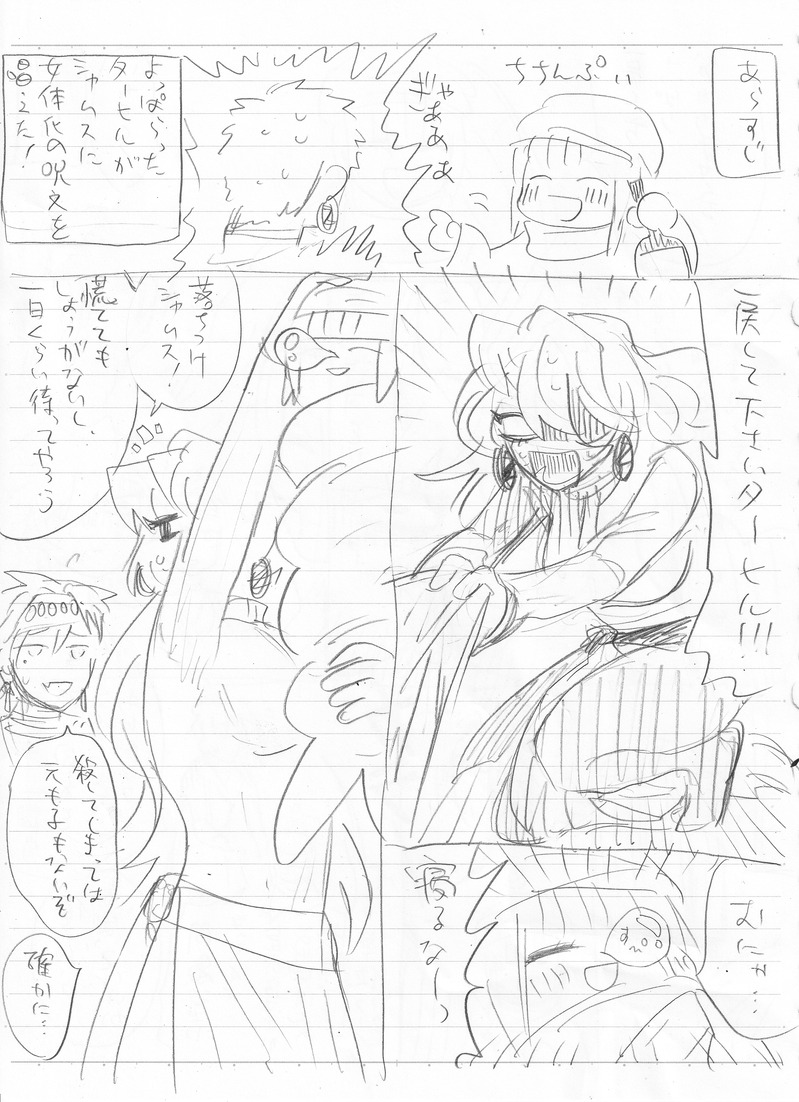 あらすじ
ちちんぷい
ぎゃあああ
よっぱらった
ターヒルが
シャムスに
女体化の呪文を
唱えた！
戻して下さいターヒル!!!
むにゃ…
すーっ
寝るなーっ
落ちつけ
シャムス！
慌てても
しょうがないし、
一日くらい待ってやろう
殺してしまっては
元も子もないぞ
確かに…